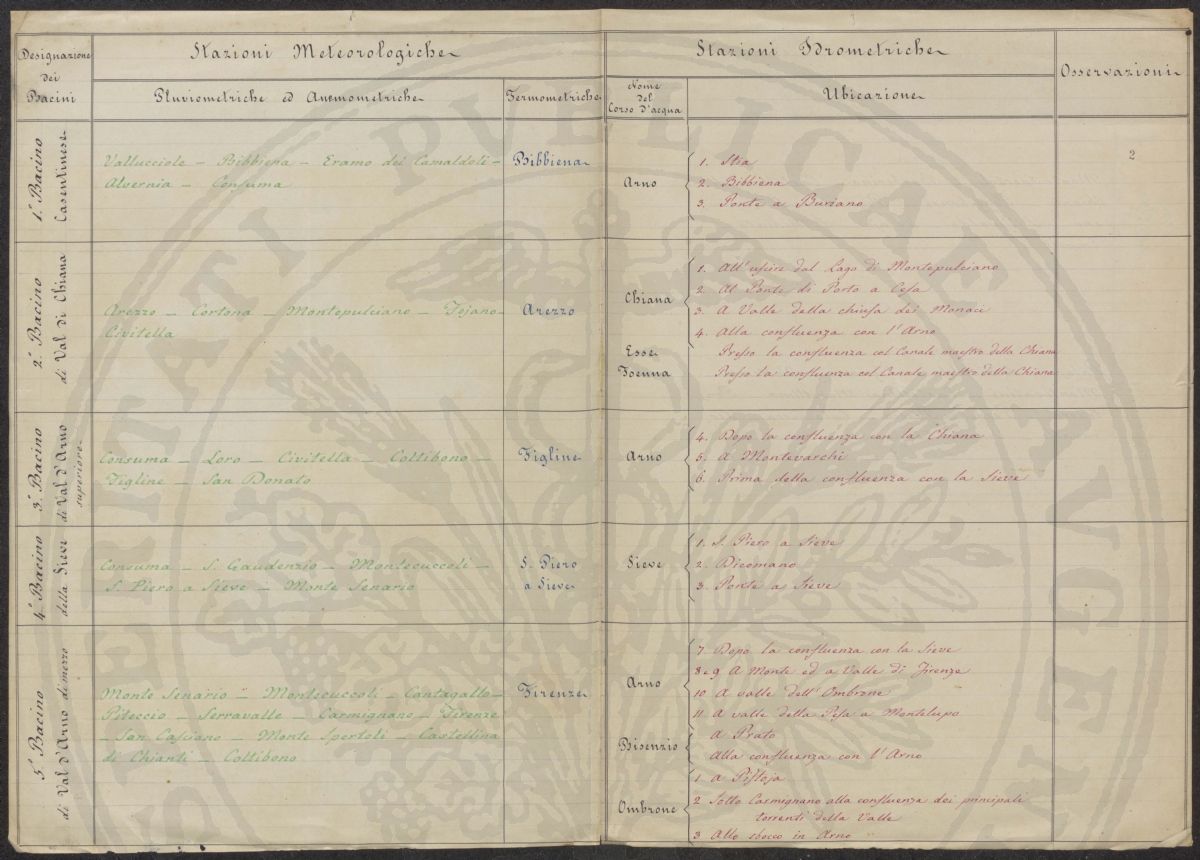 Designazione
dei
Bacini
Stazioni Meteorologiche
Pluviometriche ed Anemometriche
Termometriche
Stazioni Idrometriche
Nome
del
Corso d'acqua
Ubicazione
Osservazioni
2
1º Bacino
Casentinese
Vallucciole - Bibbiena - Eramo dei Camaldoli -
Alvernia - Consuma
Bibbiena
Arno
1. Stia
2. Bibbiena
3. Ponte a Buriano
2º Bacino
di Val di Chiana
Arezzo - Cortona - Montepulciano - Fojano
Civitella
Arezzo
Chiana
1. All'uscire dal Lago di Montepulciano
2. Al Ponte di Porto a Cesa
3. A Valle della chiusa dei Monaci
4. Alla confluenza con l'Arno
Esse
Presso la confluenza col Canale maestro della Chiana
Foenna
Presso la confluenza col Canale maestro della Chiana
3º Bacino
di Val d'Arno
superiore
Consuma - Loro - Civitella - Coltibono -
Figline - San Donato
Figline
Arno
4. Dopo la confluenza con la Chiana
5. A Montevarchi
6. Prima della confluenza con la Sieve
4º Bacino
della Sieve
Consuma - S. Gaudenzio - Montecuccoli -
S. Piero a Sieve - Monte Senario
S. Piero
a Sieve
Sieve
1. S. Piero a Sieve
2. Dicomano
3. Ponte a Sieve
5º Bacino
di Val d'Arno di mezzo
Monte Senario - Montecuccoli - Cantagallo -
Piteccio - Serravalle - Carmignano - Firenze
- San Casciano - Monte Spertoli - Castellina
di Chianti - Coltibono
Firenze
Arno
7. Dopo la confluenza con la Sieve
8 e 9 A Monte ed a Valle di Firenze
10 A valle dell'Ombrone
11. A valle della Pesa a Montelupo
Bisenzio
A Prato
Alla confluenza con l'Arno
Ombrone
1. A Pistoja
2 Sotto Carmignano alla confluenza dei principali
torrenti della Valle
3 Allo sbocco in Arno